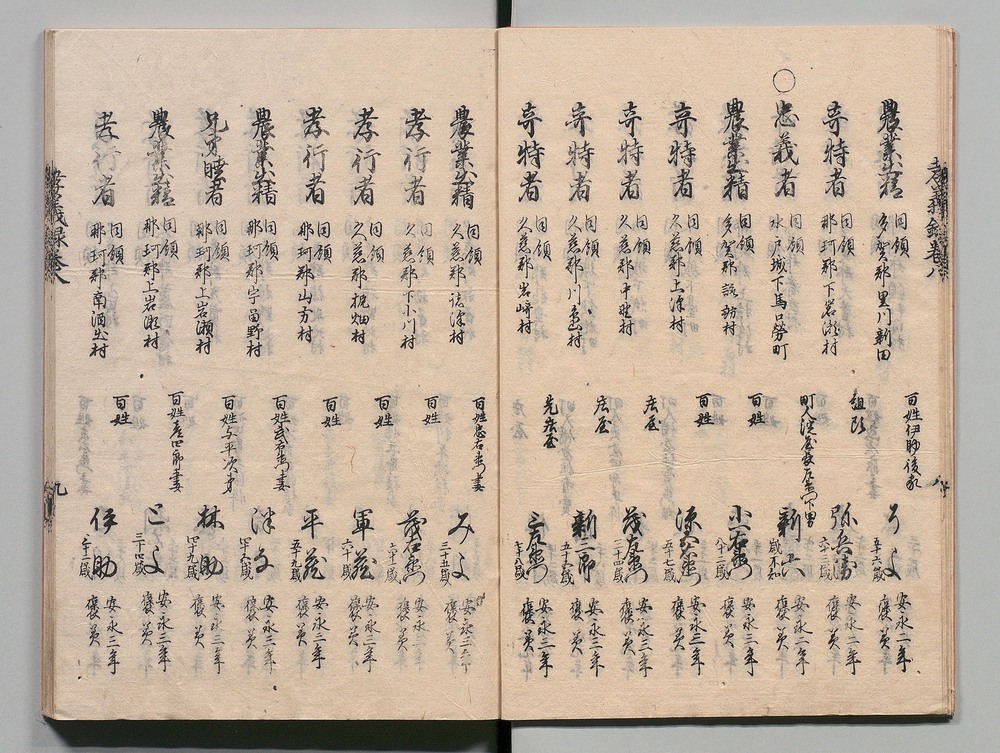 孝義録巻八
農業出精 同領 多賀郡里川新田 百姓伊助後家 りよ 五十六歳 安永二年 褒美
奇特者 同領 那珂郡下岩瀬村 組頭 弥兵衛 六十一歳 安永三年 褒美
○忠義者 同領 水戸城下馬口労町 新六 歳不知 安永三年 褒美
農業出精 同領 多賀郡諏訪村 百姓 小右衛門 八十二歳 安永三年 褒美
奇特者 同領 久慈郡上深村 百姓 五十七歳 安永三年 褒美
奇特者 同領 久慈郡中野村 庄屋 茂左衛門 三十四歳 安永三年 褒美
奇特者 同領 久慈郡川島村 庄屋 新二郎 五十六歳 安永三年 褒美
奇特者 同領 久慈郡岩崎村 先庄屋 三左衛門 安永三年 褒美
農業出精 同領 久慈郡 百姓忠右衛門妻 みよ 三十五歳 安永三年 褒美
孝行者 同領 久慈郡下小川村 百姓 茂右衛門 六十二歳 安永三年 褒美
孝行者 同領 久慈郡 百姓 軍蔵 六十一歳 安永三年 褒美
孝行者 同領 那珂郡山方村 百姓 平蔵 五十九歳 安永三年 褒美
農業出精 同領 那珂郡宇留野村 百姓武右衛門妻 安永三年 褒美
兄弟睦者 同領 那珂郡上岩瀬村 百姓与平次弟 林助 四十九歳 安永三年 褒美
農業出精 同領 那珂郡上岩瀬村 とよ 三十四歳 安永三年 褒美
孝行者 同領 那珂郡南酒出村 百姓 伊助 三十二歳 安永三年 褒美
孝義録巻八
九